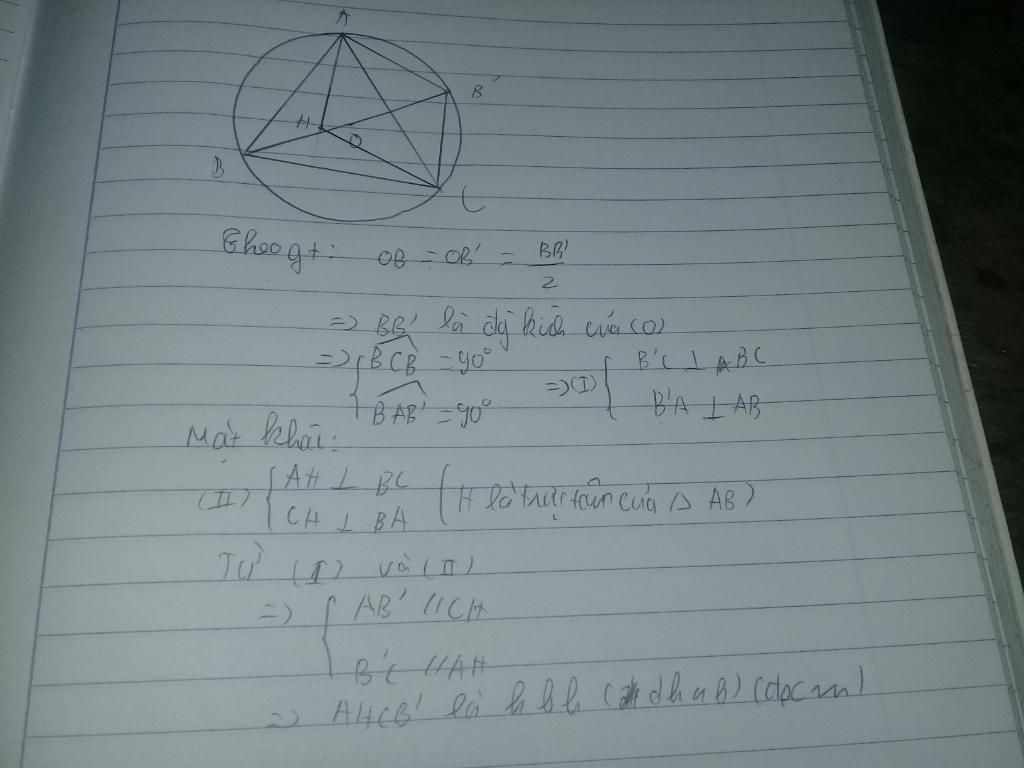 A
B'
H
O
B
C
Theo gt: OB = OB' = BB'/2
=> BB' là đg kính của (O)
=> { B'CB = 90°
BAB' = 90°
=> (I) { B'C ⊥ BC
B'A ⊥ AB
Mặt khác:
(II) { AH ⊥ BC
CH ⊥ BA
(H là trực tâm của Δ AB)
Từ (I) và (II)
=> { AB' // CH
B'C // AH
=> AHCB' là hbh (dhnb) (đpcm)